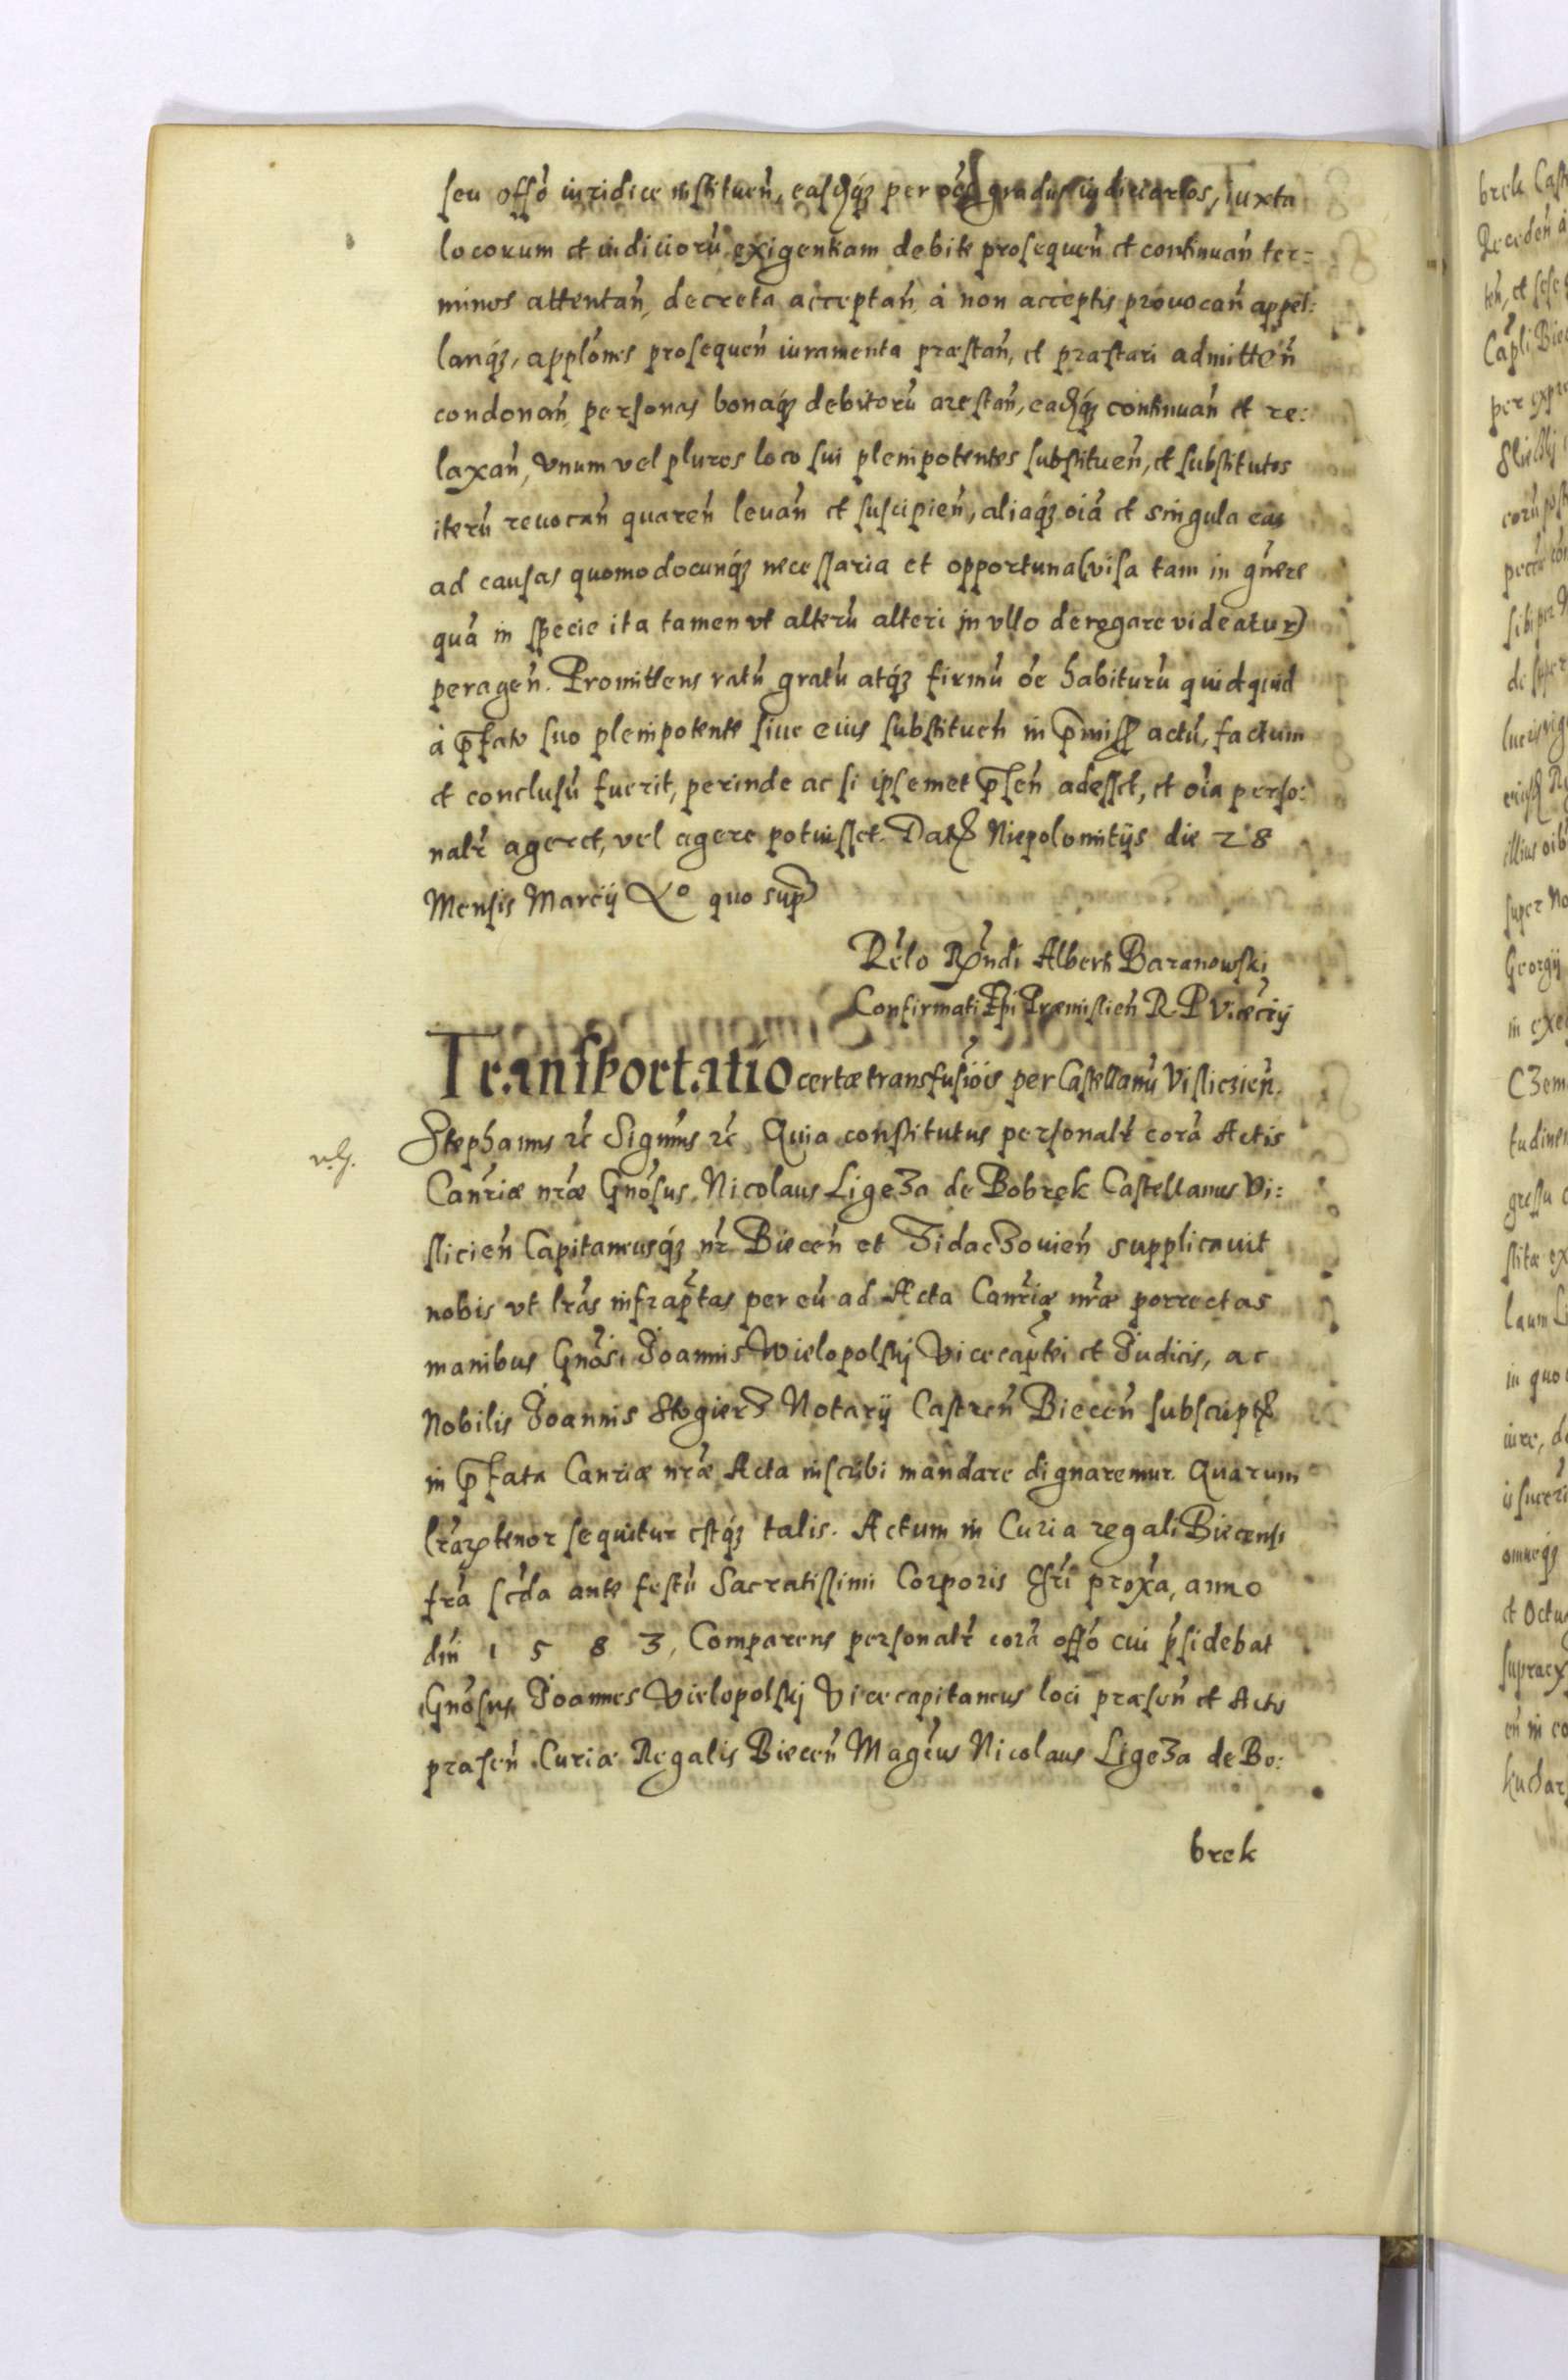 seu offõ iuridice instituen̄, easdq́ꝫ per oēs gradus iudiciarios, iuxta
locorum et iudiciorũ exigentiam debite prosequen̄ et continuan̄ ter=
minos attentan̄, decreta acceptan̄, à non acceptis prouocan̄ appel:
lanq́ꝫ, applōnes prosequen̄ iuramenta præstan̄, et præstari admitten̄
condonan̄, personas bonaq́ꝫ debitorũ arestan̄, eadq́ꝫ continuan̄ et re:
laxan̄, vnum vel plures loco sui plenipotentes substituen̄, et substitutos
iterũ reuocan̄ quaren̄ leuan̄ et suscipien̄, aliaq́ꝫ oīa et singula eas
ad causas quomodocunq́ꝫ necessaria et opportuna (visa tam in gñere
quā in specie ita tamen vt alterũ alteri in vllo deregare videatur)
peragen̄. Promittens ratũ gratũ atq́ꝫ firmũ oē habiturũ quidquid
à p̄fato suo plenipotente siue eius substituen in p̄miss actũ, factum
et conclusũ fuerit, perinde ac si ipsemet p̄sen̄ adesset, et oīa perso:
nalr̄ ageret, vel agere potuisset. Dat Niepolomitijs die 28
Mensis Marcij Aº quo sup
Relo Rṇdi Alberti Baranowski
Confirmati Epi Præmislien̄ R P Vicecrij
Transportatio certæ transfusiōis per Castellanũ Visliczien̄.
Stephanus &c Signm̄s &c Quia constitutus personalr̄ corā Actis
Canr̄iæ nr̄æ Gnōsus Nicolaus Ligeza de Bobrek Castellanus Vi:
slicien̄ Capitaneusq́ꝫ nr̄ Biecen̄ et Zidaczouien̄ supplicauit
nobis vt lr̄as infrap̄tas per eũ ad Acta Canr̄iæ nr̄æ porrectas
manibus Gnōsi Joannis Wielopolskj Vicecap̄tei et Judicis, ac
Nobilis Joannis Stogierz Notarij Castren̄ Biecen̄ subscript
in p̄fata Canriæ nr̄æ Acta inscribi mandare dignaremur Quarum
lr̄aꝝ tenor sequitur estq́ꝫ talis. Actum in Curia regali Biecensi
fr̄a scd̄a ante festũ Sacratissimi Corporis Chr̄i prox̄a, anno
dn̄i 1 5 8 3, Comparens personalr̄ corā offō cui p̄sidebat
Gnōsus Joannes Vielopolskj Vicecapitaneus loci præsen̄ et Actis
præsen̄ Curiæ Regalis Biecen̄ Mag̃cus Nicolaus Ligeza de Bo:
brek